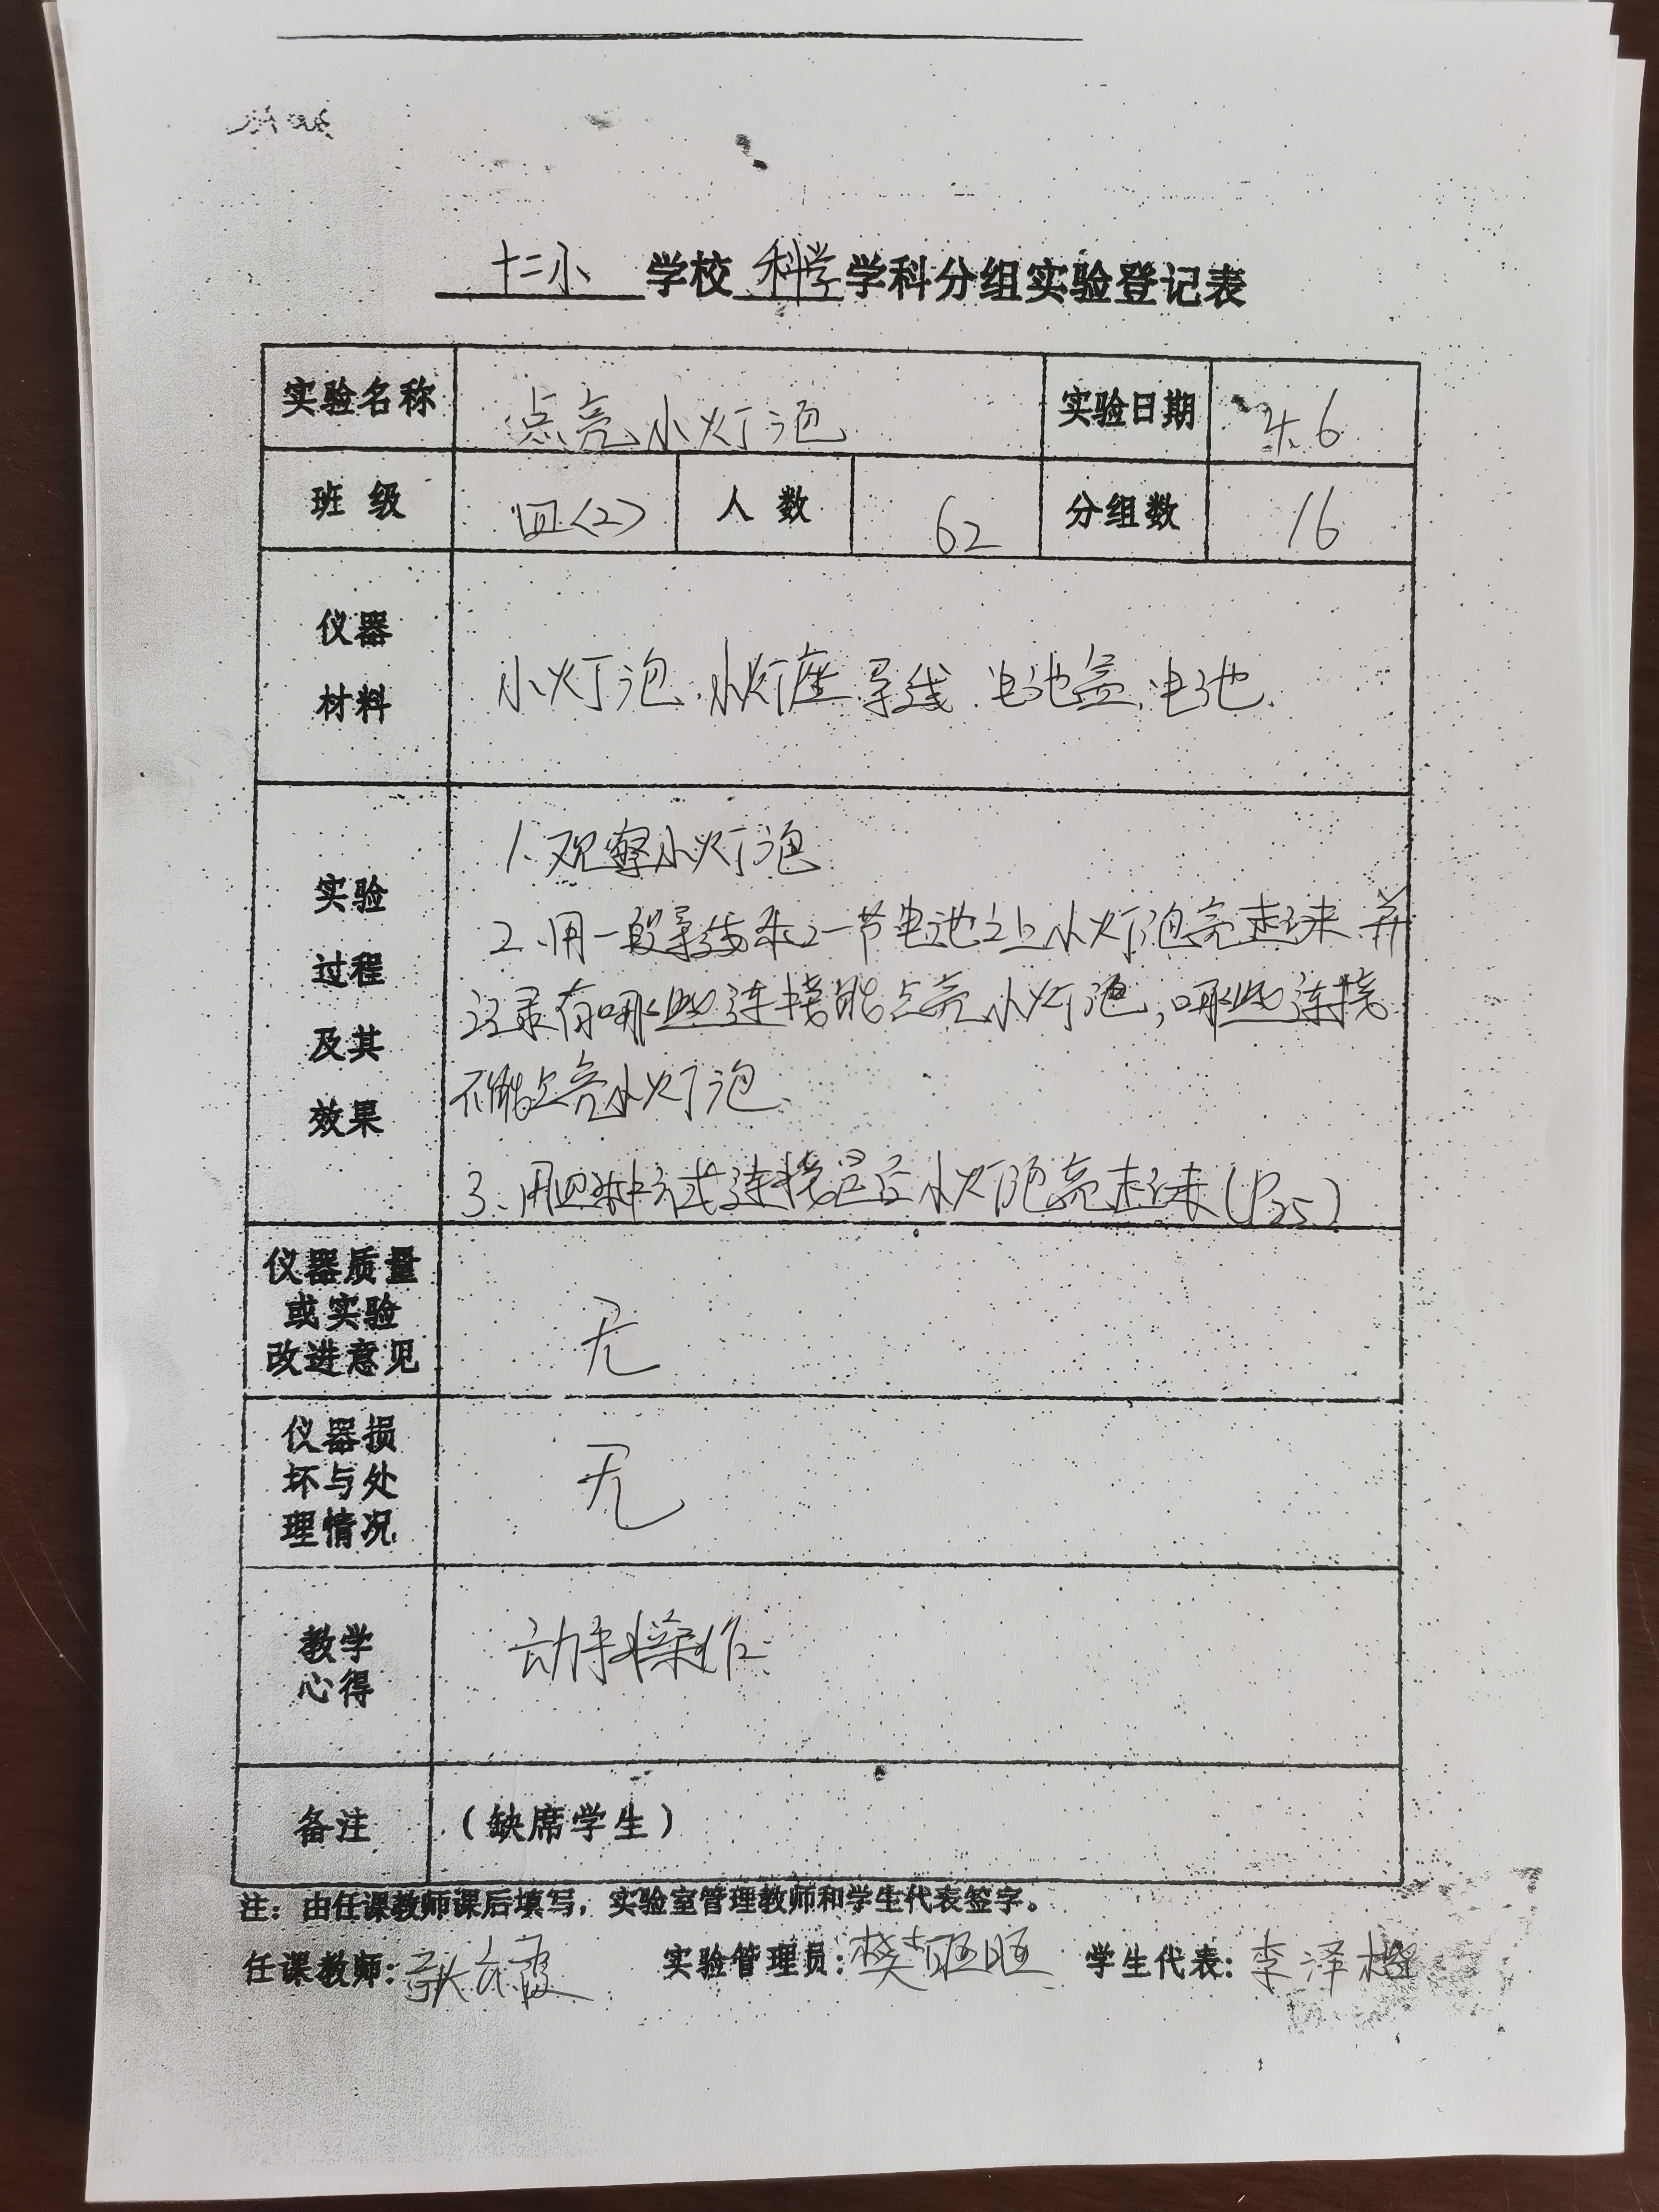 十二小 学校 科学 学科分组实验登记表
实验名称 点亮小灯泡 实验日期 4.6
班级 四(2) 人数 62 分组数 16
仪器
材料
小灯泡、小灯座、导线、电池盒、电池.
实验
过程
及其
效果
1、观察小灯泡
2、用一段导线和一节电池让小灯泡亮起来,并
记录有哪些连接能点亮小灯泡,哪些连接
不能点亮小灯泡
3、用四种方式连接是否小灯泡亮起来(P35)
仪器质量
或实验
改进意见
无
仪器损
坏与处
理情况
无
教学
心得
动手操作.
备注 (缺席学生)
注:由任课教师课后填写,实验室管理教师和学生代表签字。
任课教师: 实验管理员: 学生代表:李泽